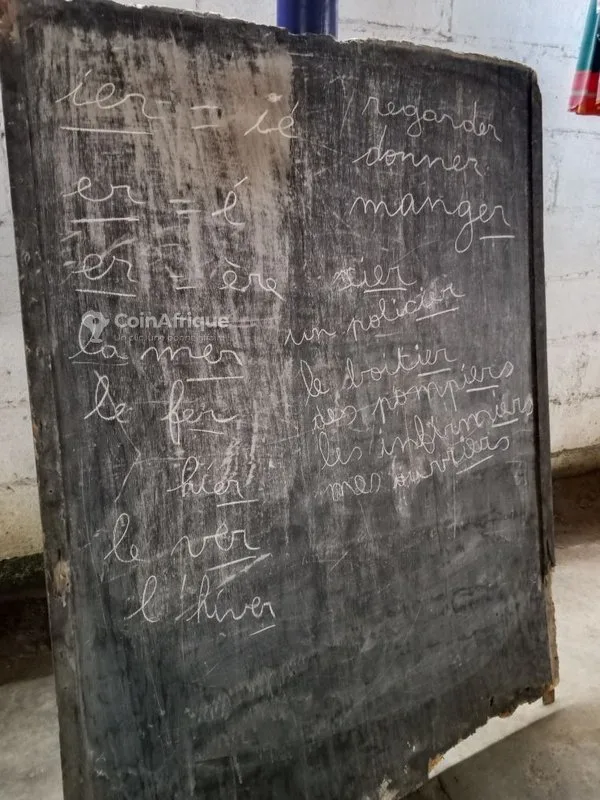 ier = ié
er = é
er = ère
la mer
le fer
hier
le ver
l'hiver
regarder
donner
manger
ier
un policier
le boitier
des pompiers
les infirmiers
mes ouvriers
CoinAfrique